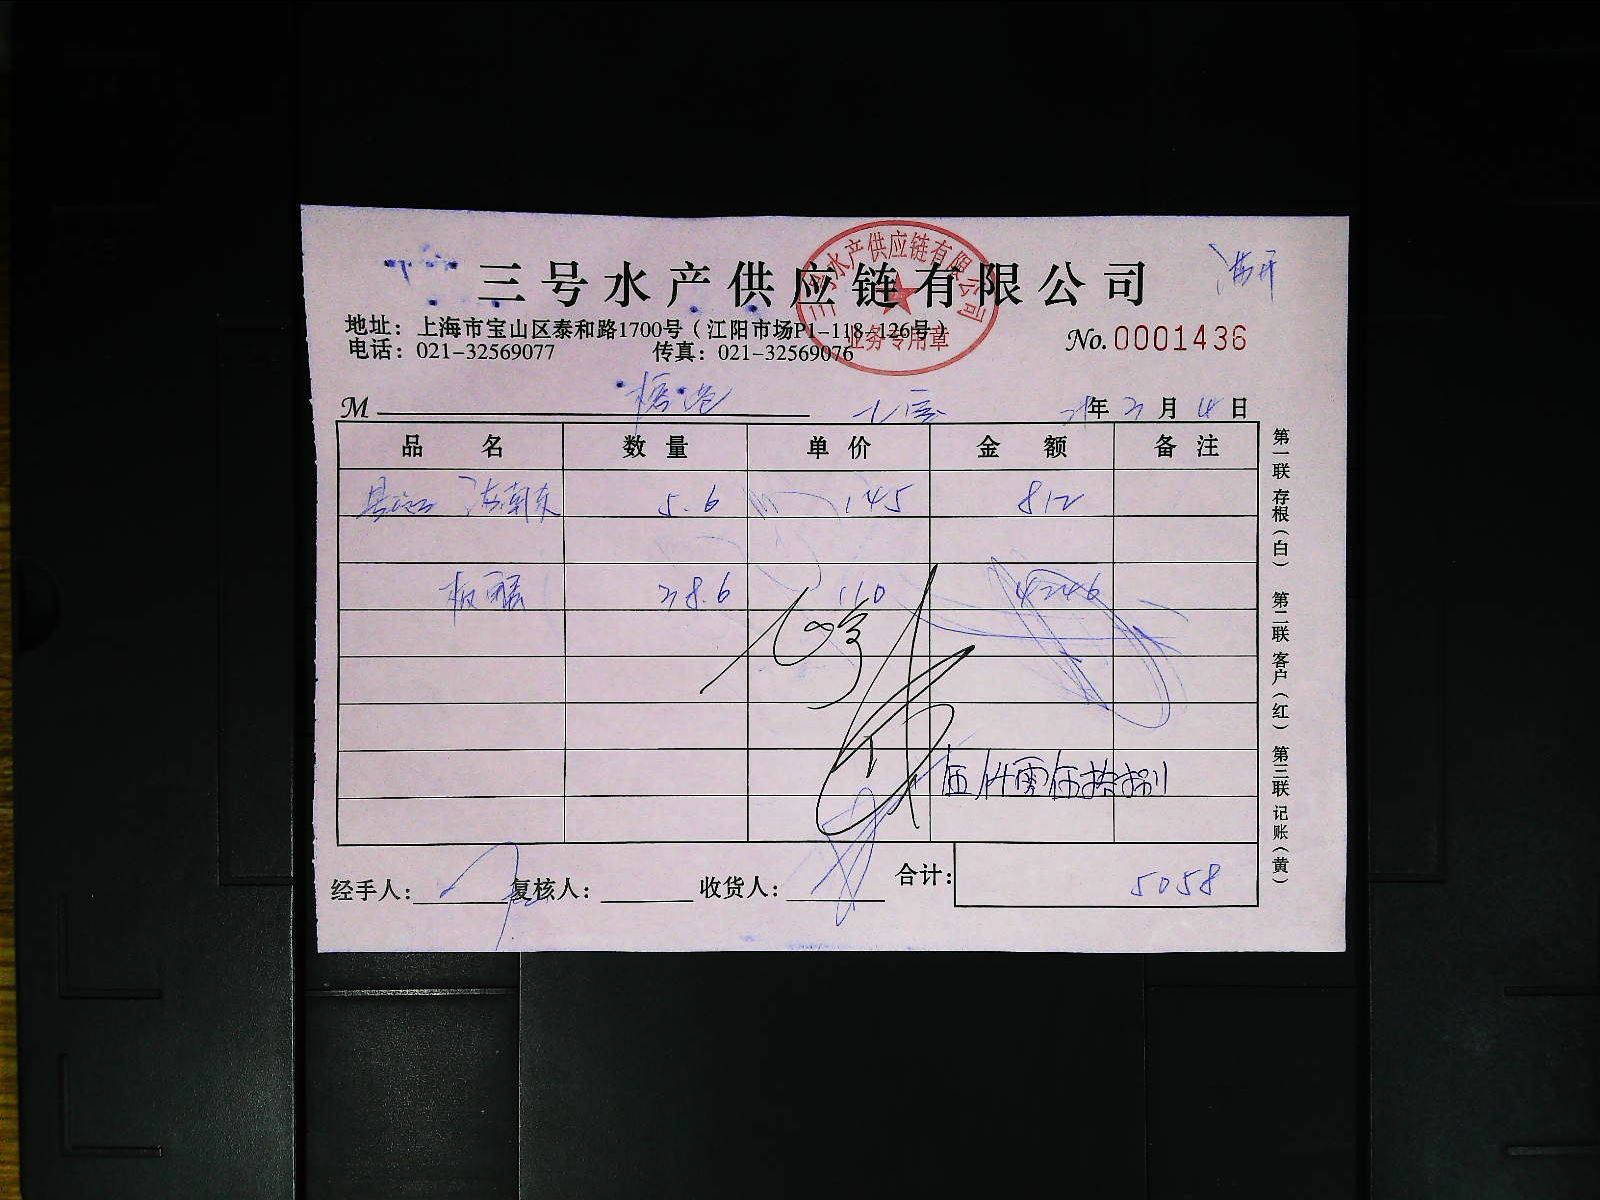 三号水产供应链有限公司
三号水产供应链有限公司
业务专用章
地址：上海市宝山区泰和路1700号（江阳市场P1-118-126号）
电话：021-32569077 传真：021-32569076
No.0001436
M 年 3月4日
品名 数量 单价 金额 备注
5.6 145 812
38.6 110 4246
伍仟零伍拾捌
经手人： 复核人： 收货人： 合计： 5058
第一联 存根（白） 第二联 客户（红） 第三联 记账（黄）